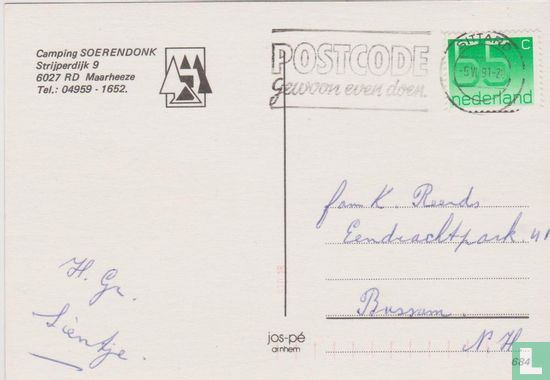 Camping SOERENDONK
Strijperdijk 9
6027 RD Maarheeze
Tel.: 04959 - 1652.
POSTCODE
gewoon even doen.
55 c
nederland
fam K. Reerds
Eendrachtpark 41
Bussum.
N.H.
H. Gr.
Sientje.
jos-pé
arnhem
684